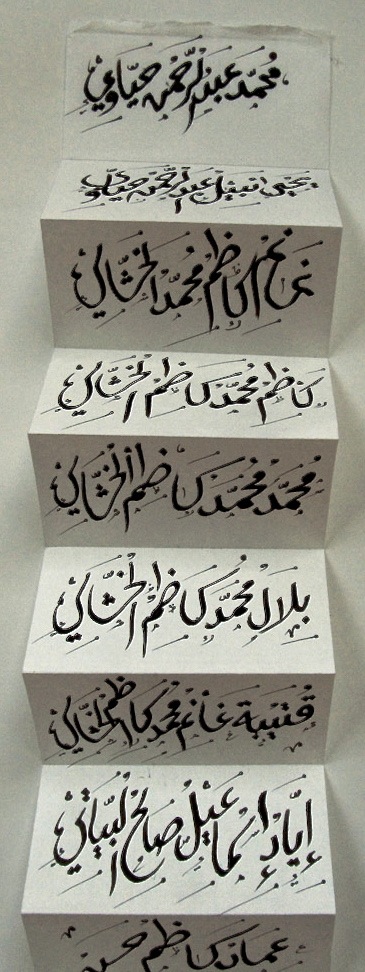 محمد عبدالرحمن حياوي
يحيى نبيل عبدالرحمن حياوي
كاظم محمد الخشالي
كاظم محمد كاظم الخشالي
محمد محمد كاظم الخشالي
بلال محمد كاظم الخشالي
قتيبة غانم محمد كاظم الخشالي
إياد إسماعيل صالح البياتي
عماد كاظم حسن